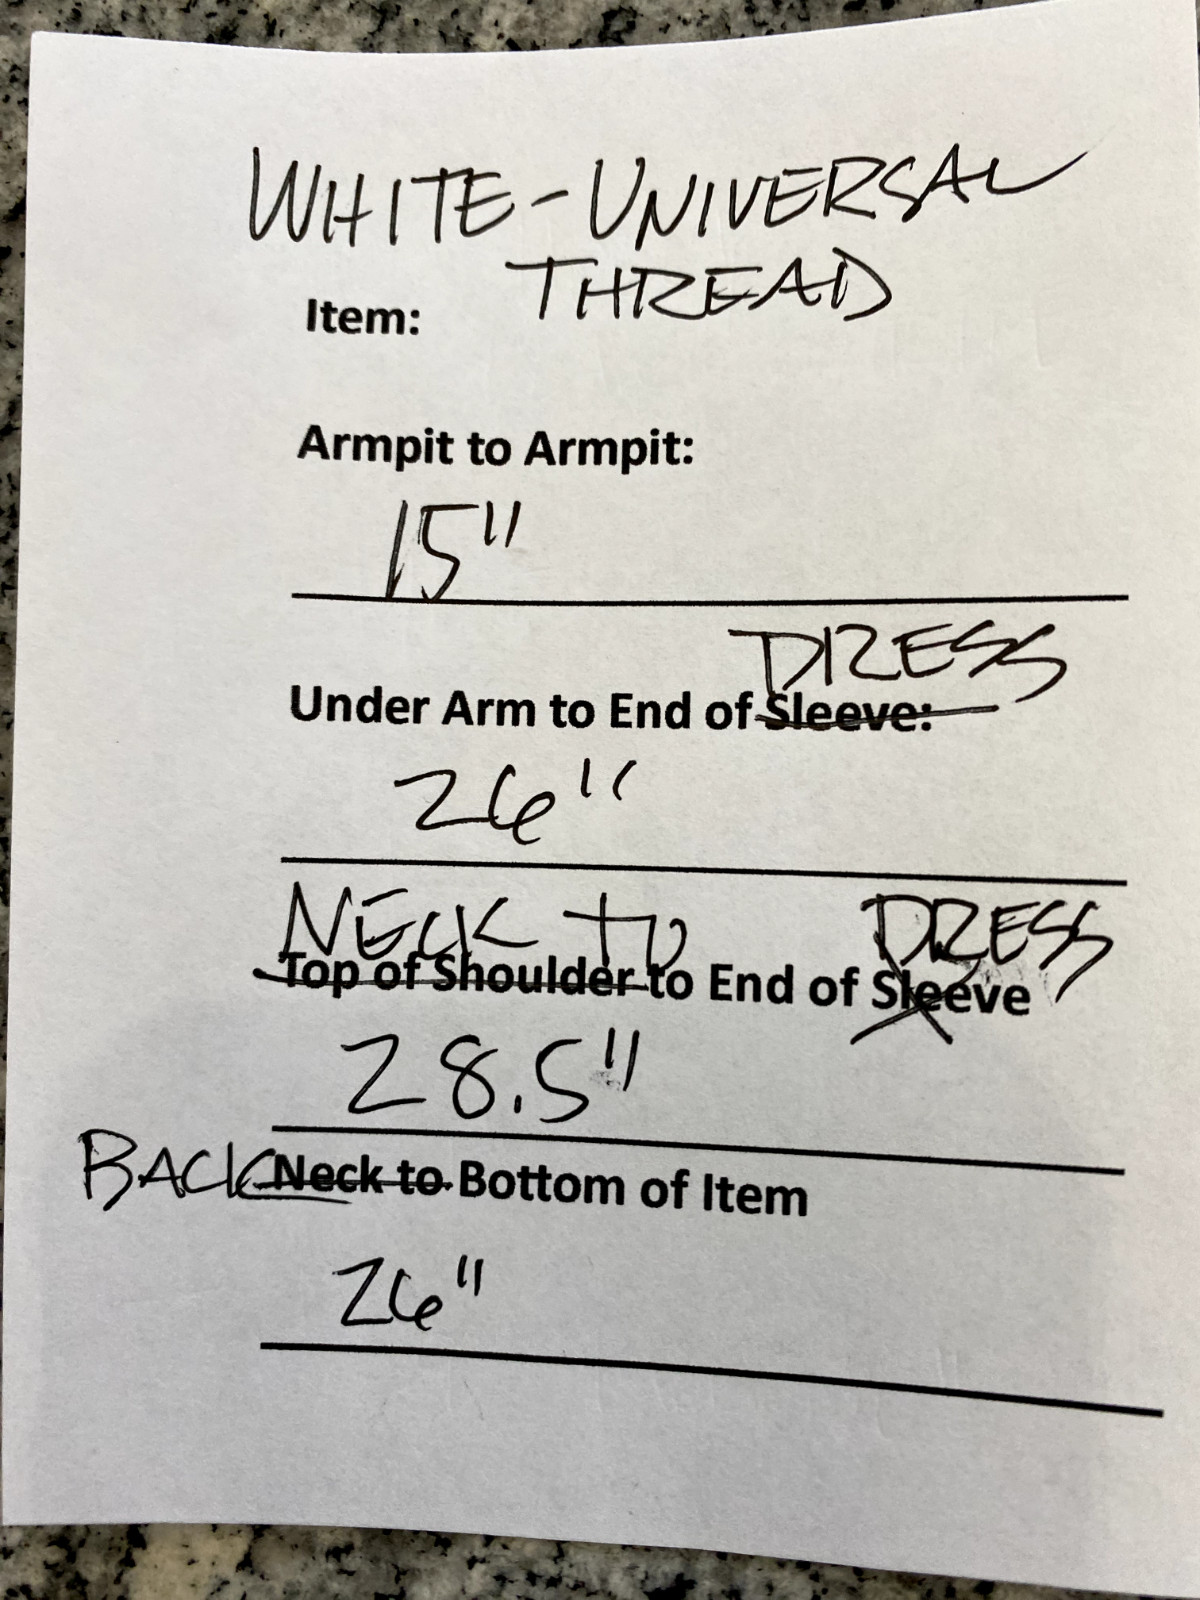 WHITE-UNIVERSAL
THREAD
Item:
Armpit to Armpit:
15"
DRESS
Under Arm to End of Sleeve:
26"
NECK to DRESS
Top of Shoulder to End of Sleeve
28.5"
BACK Neck to Bottom of Item
26"